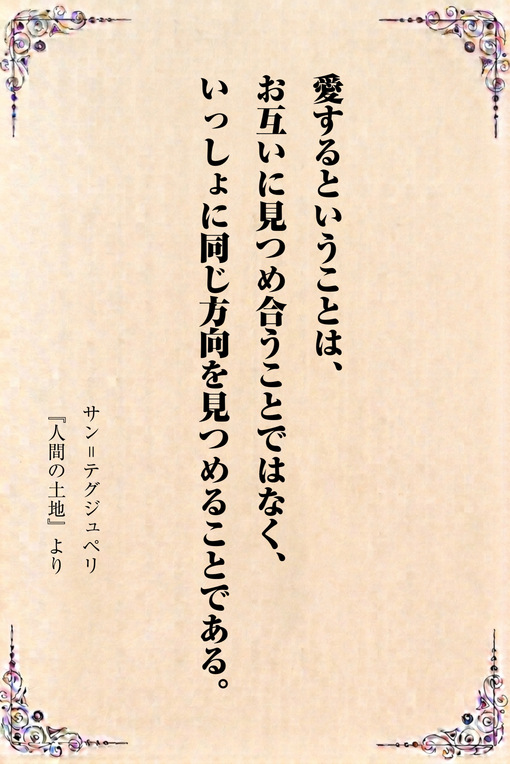 愛するということは、
お互いに見つめ合うことではなく、
いっしょに同じ方向を見つめることである。
サン＝テグジュペリ
『人間の土地』より